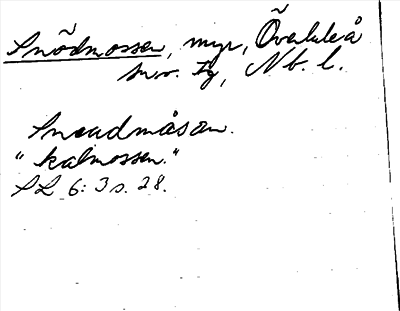 Snödmossen, myr, Överluleå
sn. Nb. l.
Sneadmåsan.
"kalmossen."
SL 6:3 s. 28.